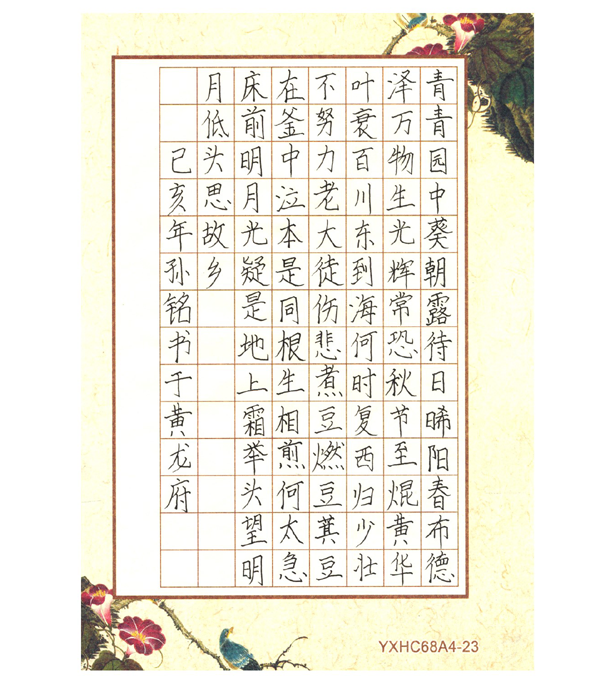 青青园中葵朝露待日晞阳春布德
泽万物生光辉常恐秋节至焜黄华
叶衰百川东到海何时复西归少壮
不努力老大徒伤悲煮豆燃豆萁豆
在釜中泣本是同根生相煎何太急
床前明月光疑是地上霜举头望明
月低头思故乡
己亥年孙铭书于黄龙府
YXHC68A4-23